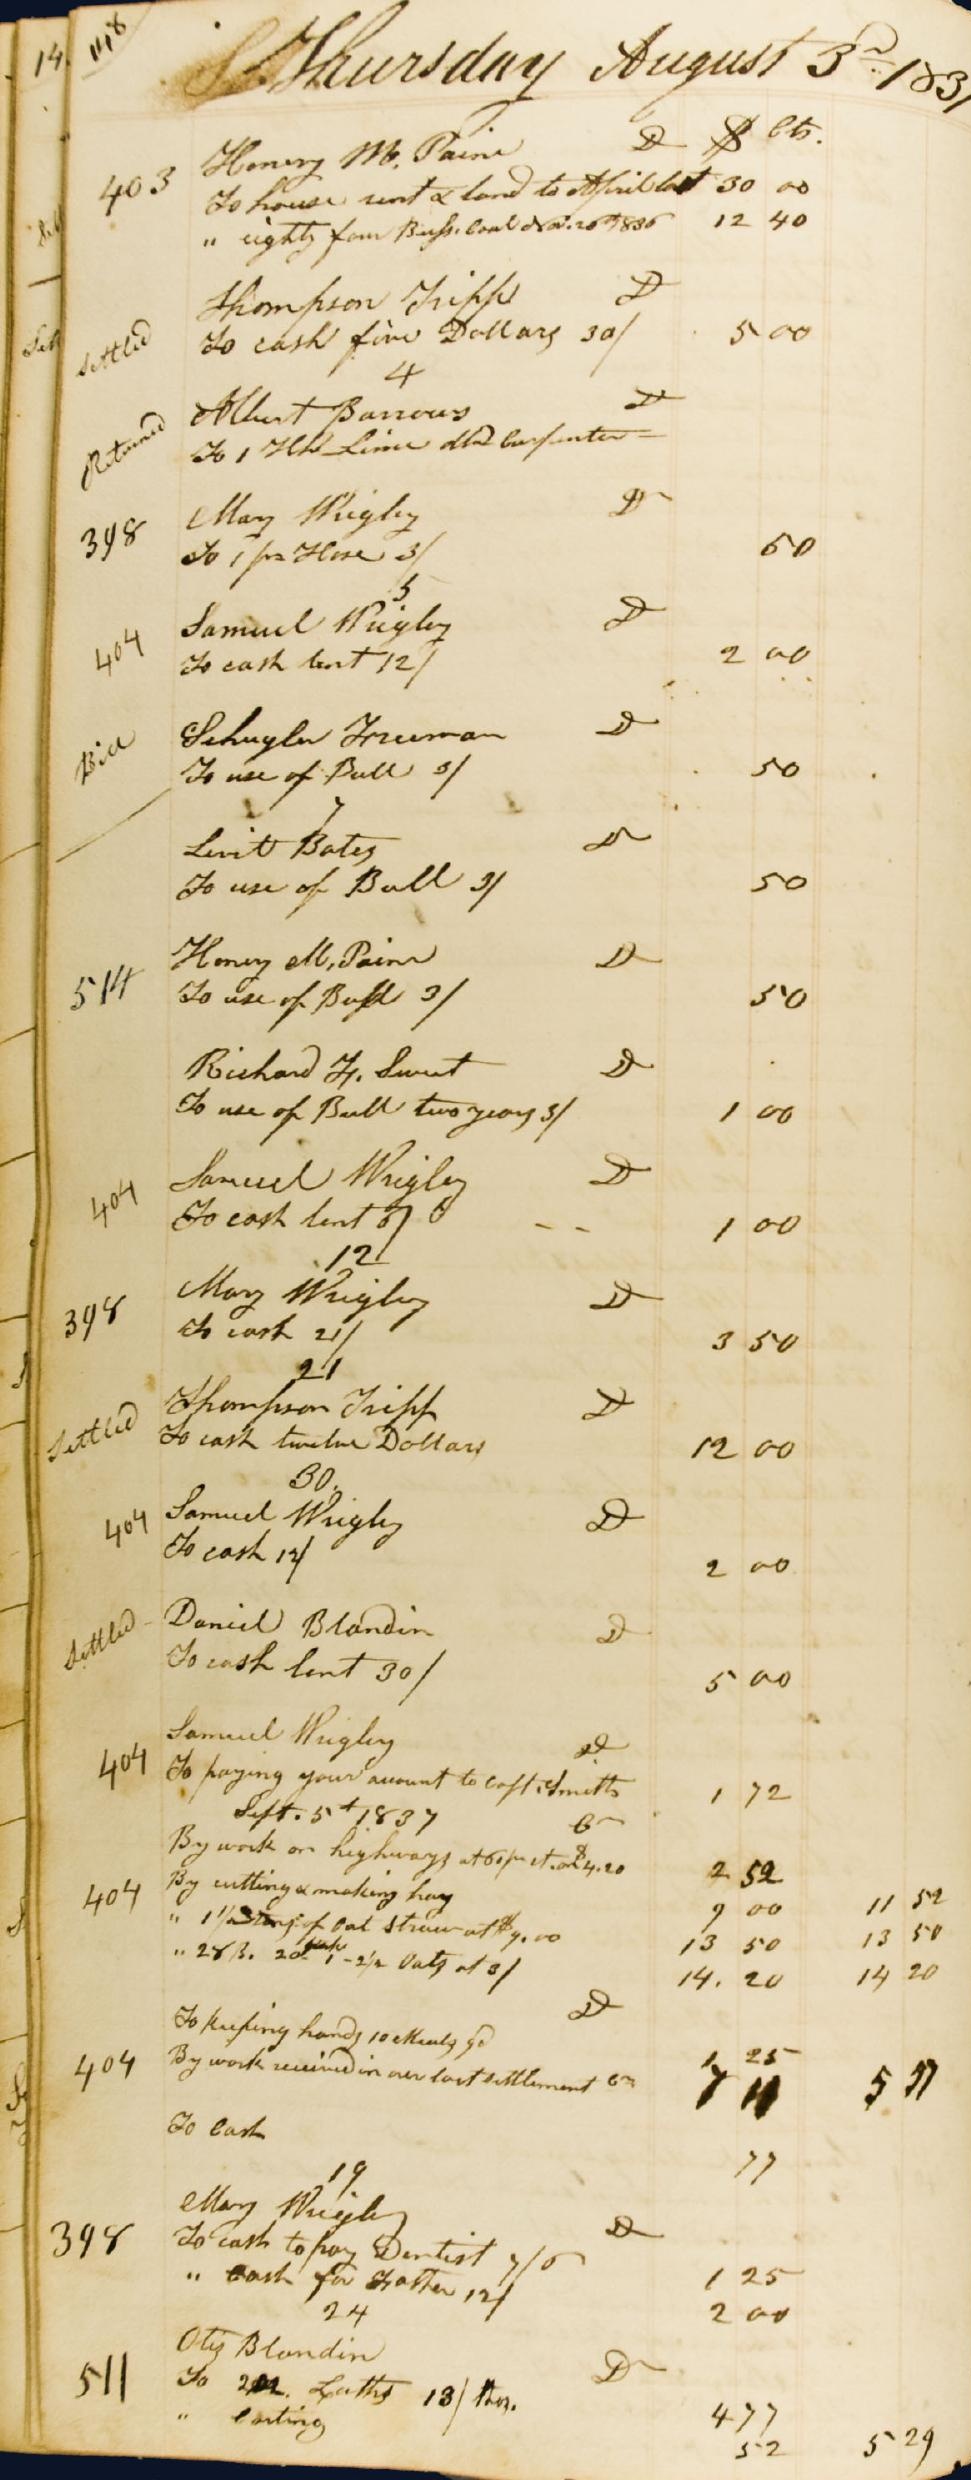 148
Thursday August 3rd 1837
$ Cts.
403 Henery M. Paine D
To house rent & land to April last 30 00
" eighty four Bush. Coal Nov. 26th 1836 12 40
Thompson Tripp D
Settled To cash five Dollars 30/ 5 00
4
Albert Barrows D
Returned To 1 Hhd Lime dld Carpenter
Mary Wrigley D
398 To 1 pr Hose 3/ 50
5
Samuel Wrigley D
404 To cash lent 12/ 2 00
Bill Schuyler Freeman D
To use of Bull 3/ 50
7
Levit Bates D
To use of Bull 3/ 50
Henry M. Paine D
514 To use of Bull 3/ 50
Richard F. Sweet D
To use of Bull two years 3/ 1 00
Samuel Wrigley D
404 To cash lent 6/ 1 00
12
Mary Wrigley D
398 To cash 21/ 3 50
21
Thompson Tripp D
Settled To cash twelve Dollars 12 00
30
Samuel Wrigley D
404 To cash 12/ 2 00
Daniel Blandin D
Settled To cash lent 30/ 5 00
Samuel Wrigley D
404 To paying your account to Capt Smith 1 72
Sept. 5t 1837 Cr
By work on highways at 60 pr ct. on $4.20 2 52
404 By cutting & making hay 9 00 11 52
" 1 1/2 of Oat Straw at $9.00 13 50 13 50
" 28 B. 20 1-2/2 Oats at 3/ 14.20 14 20
D
To keeping hands 10 Meals 9d 1 25
404 By work received in over last settlement Cr 7 11 5 57
To Cash 77
19
Mary Wrigley D
398 To cash to pay Dentist 7/6 1 25
" Cash for Foster 12/ 2 00
24
Otis Blandin D
511 To Laths 13/ thos. 4 77
" Carting 52 5 29